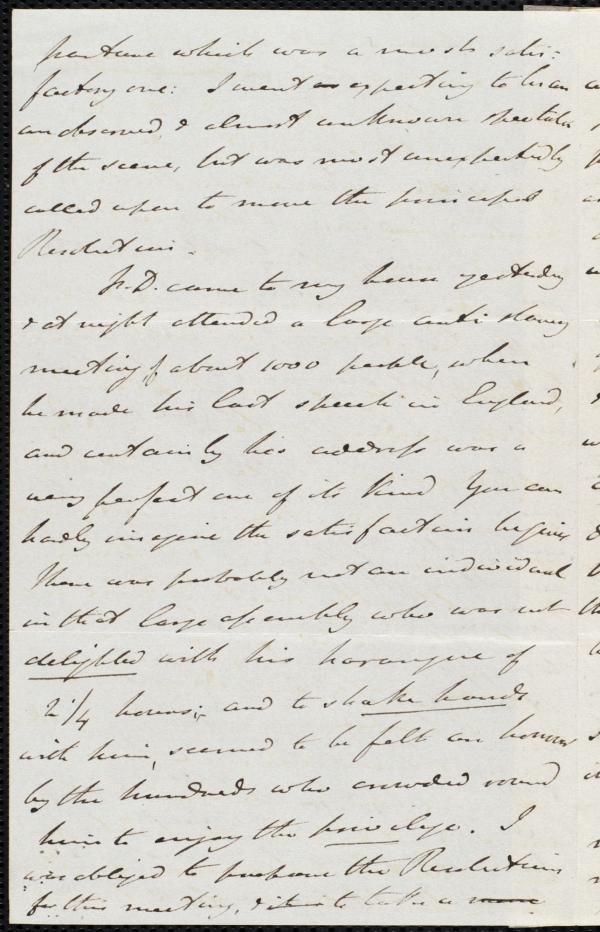 parture which was a most satis:
factory one: I went expecting to be an
unobserved, & almost unknown spectator
of the scene, but was most unexpectedly
called upon to move the principal
Resolution.
F. D. came to my house yesterday
& at night attended a large anti slavery
meeting of about 1000 people, when
he made his last speech in England,
and certainly his address was a
very perfect one of its kind You can
hardly imagine the satisfaction he gives
There was probably not an individual
in that large assembly who was not
delighted with his harangue of
2 1/4 hours; and to shake hands
with him, seemed to be felt an honour
by the hundreds who crowded round
him to enjoy the privilege. I
was obliged to prepare the Resolutions
for this meeting, & to take a more